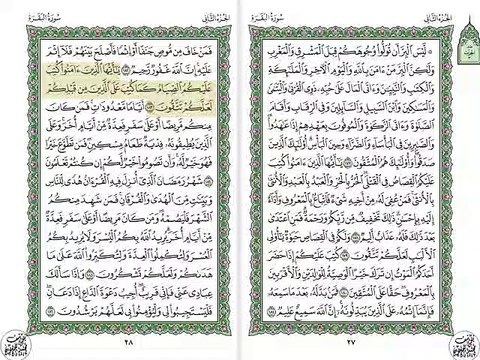 سُورَةُ البَقَرَةِ
الجُزْءُ الثَّانِي
۞ لَّيْسَ ٱلْبِرَّ أَن تُوَلُّوا۟ وُجُوهَكُمْ قِبَلَ ٱلْمَشْرِقِ وَٱلْمَغْرِبِ
وَلَٰكِنَّ ٱلْبِرَّ مَنْ ءَامَنَ بِٱللَّهِ وَٱلْيَوْمِ ٱلْءَاخِرِ وَٱلْمَلَٰٓئِكَةِ
وَٱلْكِتَٰبِ وَٱلنَّبِيِّۦنَ وَءَاتَى ٱلْمَالَ عَلَىٰ حُبِّهِۦ ذَوِى ٱلْقُرْبَىٰ وَٱلْيَتَٰمَىٰ
وَٱلْمَسَٰكِينَ وَٱبْنَ ٱلسَّبِيلِ وَٱلسَّآئِلِينَ وَفِى ٱلرِّقَابِ وَأَقَامَ
ٱلصَّلَوٰةَ وَءَاتَى ٱلزَّكَوٰةَ وَٱلْمُوفُونَ بِعَهْدِهِمْ إِذَا عَٰهَدُوا۟
وَٱلصَّٰبِرِينَ فِى ٱلْبَأْسَآءِ وَٱلضَّرَّآءِ وَحِينَ ٱلْبَأْسِ أُو۟لَٰٓئِكَ ٱلَّذِينَ
صَدَقُوا۟ وَأُو۟لَٰٓئِكَ هُمُ ٱلْمُتَّقُونَ ١٧٧ يَٰٓأَيُّهَا ٱلَّذِينَ ءَامَنُوا۟ كُتِبَ
عَلَيْكُمُ ٱلْقِصَاصُ فِى ٱلْقَتْلَى ٱلْحُرُّ بِٱلْحُرِّ وَٱلْعَبْدُ بِٱلْعَبْدِ وَٱلْأُنثَىٰ
بِٱلْأُنثَىٰ فَمَنْ عُفِىَ لَهُۥ مِنْ أَخِيهِ شَىْءٌ فَٱتِّبَاعٌۢ بِٱلْمَعْرُوفِ وَأَدَآءٌ
إِلَيْهِ بِإِحْسَٰنٍ ذَٰلِكَ تَخْفِيفٌ مِّن رَّبِّكُمْ وَرَحْمَةٌ فَمَنِ ٱعْتَدَىٰ
بَعْدَ ذَٰلِكَ فَلَهُۥ عَذَابٌ أَلِيمٌ ١٧٨ وَلَكُمْ فِى ٱلْقِصَاصِ حَيَوٰةٌ يَٰٓأُو۟لِى
ٱلْأَلْبَٰبِ لَعَلَّكُمْ تَتَّقُونَ ١٧٩ كُتِبَ عَلَيْكُمْ إِذَا حَضَرَ
أَحَدَكُمُ ٱلْمَوْتُ إِن تَرَكَ خَيْرًا ٱلْوَصِيَّةُ لِلْوَٰلِدَيْنِ وَٱلْأَقْرَبِينَ
بِٱلْمَعْرُوفِ حَقًّا عَلَى ٱلْمُتَّقِينَ ١٨٠ فَمَنۢ بَدَّلَهُۥ بَعْدَ مَا سَمِعَهُۥ
فَإِنَّمَآ إِثْمُهُۥ عَلَى ٱلَّذِينَ يُبَدِّلُونَهُۥٓ إِنَّ ٱللَّهَ سَمِيعٌ عَلِيمٌ ١٨١
٢٧
الجُزْءُ الثَّانِي
سُورَةُ البَقَرَةِ
فَمَنْ خَافَ مِن مُّوصٍ جَنَفًا أَوْ إِثْمًا فَأَصْلَحَ بَيْنَهُمْ فَلَآ إِثْمَ
عَلَيْهِ إِنَّ ٱللَّهَ غَفُورٌ رَّحِيمٌ ١٨٢ يَٰٓأَيُّهَا ٱلَّذِينَ ءَامَنُوا۟ كُتِبَ
عَلَيْكُمُ ٱلصِّيَامُ كَمَا كُتِبَ عَلَى ٱلَّذِينَ مِن قَبْلِكُمْ
لَعَلَّكُمْ تَتَّقُونَ ١٨٣ أَيَّامًا مَّعْدُودَٰتٍ فَمَن كَانَ
مِنكُم مَّرِيضًا أَوْ عَلَىٰ سَفَرٍ فَعِدَّةٌ مِّنْ أَيَّامٍ أُخَرَ وَعَلَى
ٱلَّذِينَ يُطِيقُونَهُۥ فِدْيَةٌ طَعَامُ مِسْكِينٍ فَمَن تَطَوَّعَ خَيْرًا
فَهُوَ خَيْرٌ لَّهُۥ وَأَن تَصُومُوا۟ خَيْرٌ لَّكُمْ إِن كُنتُمْ تَعْلَمُونَ
١٨٤ شَهْرُ رَمَضَانَ ٱلَّذِىٓ أُنزِلَ فِيهِ ٱلْقُرْءَانُ هُدًى لِّلنَّاسِ
وَبَيِّنَٰتٍ مِّنَ ٱلْهُدَىٰ وَٱلْفُرْقَانِ فَمَن شَهِدَ مِنكُمُ
ٱلشَّهْرَ فَلْيَصُمْهُ وَمَن كَانَ مَرِيضًا أَوْ عَلَىٰ سَفَرٍ فَعِدَّةٌ
مِّنْ أَيَّامٍ أُخَرَ يُرِيدُ ٱللَّهُ بِكُمُ ٱلْيُسْرَ وَلَا يُرِيدُ بِكُمُ
ٱلْعُسْرَ وَلِتُكْمِلُوا۟ ٱلْعِدَّةَ وَلِتُكَبِّرُوا۟ ٱللَّهَ عَلَىٰ مَا
هَدَىٰكُمْ وَلَعَلَّكُمْ تَشْكُرُونَ ١٨٥ وَإِذَا سَأَلَكَ
عِبَادِى عَنِّى فَإِنِّى قَرِيبٌ أُجِيبُ دَعْوَةَ ٱلدَّاعِ إِذَا دَعَانِ
فَلْيَسْتَجِيبُوا۟ لِى وَلْيُؤْمِنُوا۟ بِى لَعَلَّهُمْ يَرْشُدُونَ ١٨٦
٢٨